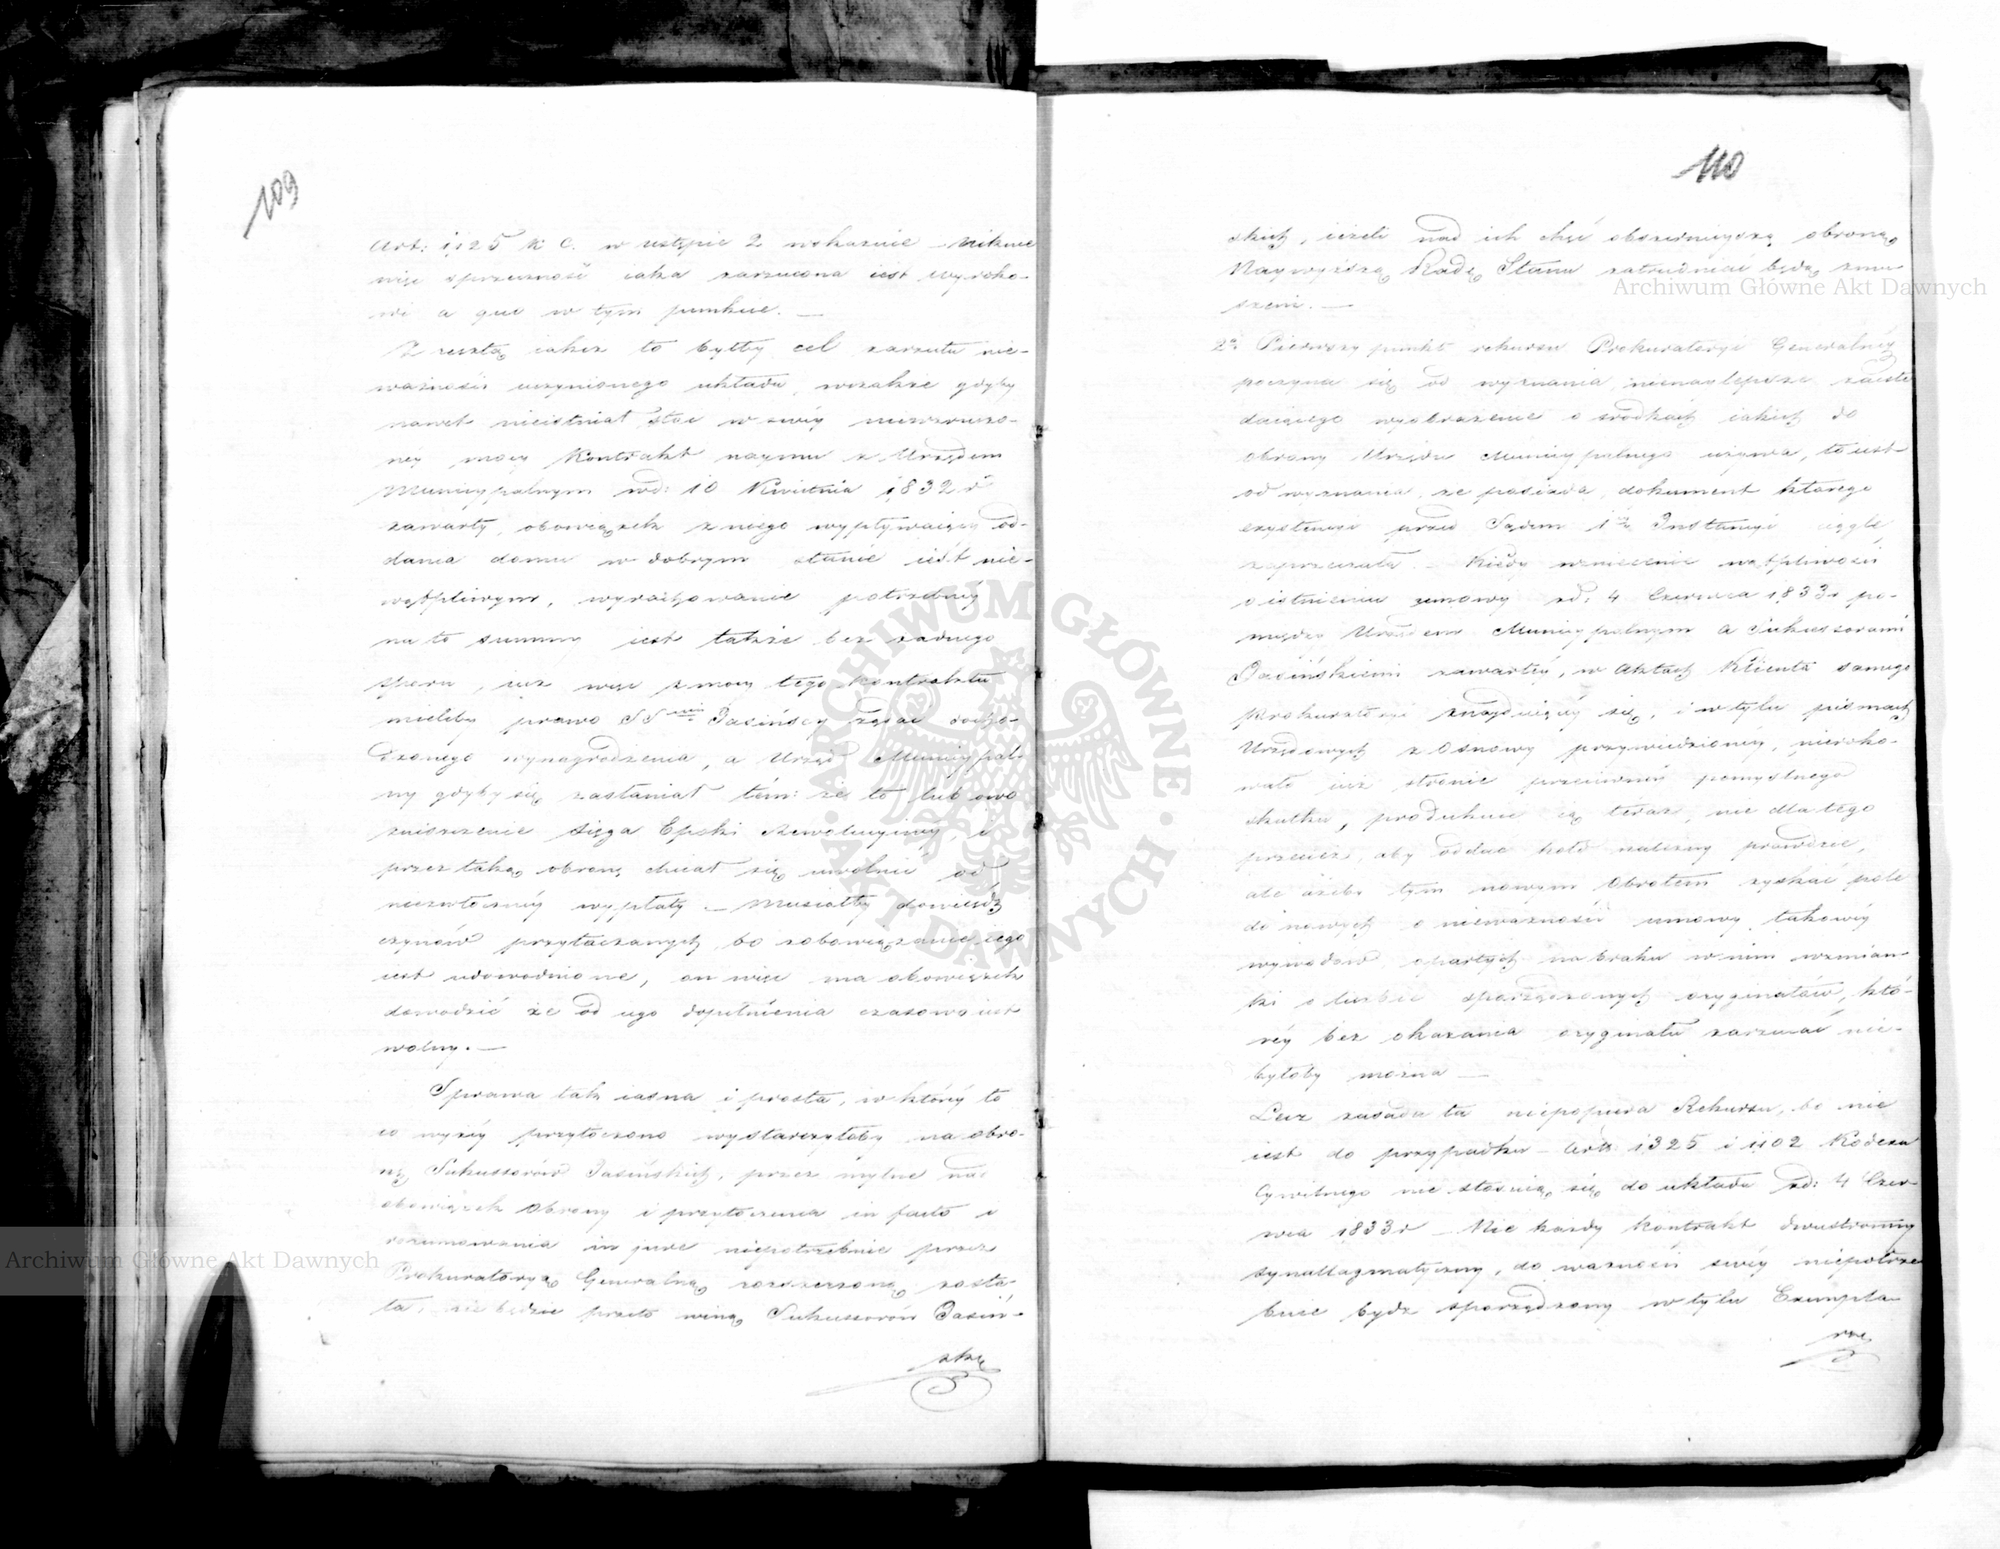 109
Art: 1325 K. C. w ustępie 2 wskazuie – niknie
więc sprzeczność iaka zarzucona iest wyroko-
wi a quo w tym punkcie. —
Z resztą iakiż to byłby cel zarzutu nie-
ważności uczynionego układu, wszakże gdyby
nawet nieistniał stoi w swéy niewzruszo-
ney mocy Kontrakt naymu z Urzędem
Municypalnym wd: 10 Kwietnia 1832 r
zawarty, obowiązek z niego wypływaiący od-
dania domu w dobrym stanie iest nie-
wątpliwym, wyrachowanie potrzebnéy
na to summy iest także bez żadnego
sporu, iuż więc z mocy tego Kontraktu
mieliby prawo SS Jasińscy żądać docho-
dzonego wynagrodzenia, a Urząd Municypal-
ny gdyby się zasłaniał tém: że to lub owo
zniszczenie sięga Epoki Rewolucyinéy, i
przez taką obronę chciał się uwolnić od
niezwłocznéy wypłaty – Musiałby dowieść
czynów przytaczanych, bo zobowiązanie iego
iest udowodnione, on więc ma obowiązek
dowodzić że od iego dopełnienia czasowo iest
wolny. —
Sprawa tak iasna i prosta, w któréy to
co wyżéy przytoczono wystarczyłoby na obro-
nę Sukcessorów Jasińskich, przez mylne nad
obowiązek Obrony i przytoczenia in facto i
rozumowania in jure niepotrzebnie przez
Prokuratoryą Generalną rozszerzoną zosta-
ła, nie będzie przeto winą Sukcessorów Jasiń-
skich
110
skich, ieżeli nad ich chęć obszernieyszą obroną
Naywyższą Radę Stanu zatrudniać będą zmu-
szeni. —
2° Pierwszy punkt rekursu Prokuratoryi Generalnéy
poczyna się od wyznania, nienaylepsze zaiste
daiącego wyobrażenie o środkach iakich do
obrony Urzędu Municypalnego używa, to iest
od wyznania, że posiada dokument którego
exystencyi przed Sądem 1éy Instancyi ciągle
zaprzeczała – Kiedy wzniecenie wątpliwości
o istnieniu umowy zd: 4 Czerwca 1833 r po-
między Urzędem Municypalnym a Sukcessorami
Jasińskiemi zawartéy, w Aktach Klienta samego
Prokuratoryi znayduiącéy się, i w tylu pismach
Urzędowych z Osnowy przywiedzionéy, nieroko-
wało iuż stronie przeciwnéy pomyślnego
skutku, produkuie ią teraz, nie dla tego
przecież, aby oddać hołd należny prawdzie,
ale ażeby tym nowym Obrotem zyskać pole
do nowych o nieważności umowy takowéy
wywodów opartych na braku w nim wzmian-
ki o liczbie sporządzonych oryginałów, któ-
réy bez okazania oryginału zarzucać nie-
byłoby można —
Lecz zasada ta niepopiera Rekursu, bo nie
iest do przypadku – Artt: 1325 i 1102 Kodexu
Cywilnego nie stosuią się do układu zd: 4 Czer-
wca 1833 r – Nie każdy Kontrakt dwustronny
synallagmatyczny, do ważności swéy niepotrze-
buie bydź sporządzony w tylu Exempla-
rzy
ARCHIWUM GŁÓWNE AKT DAWNYCH
Archiwum Główne Akt Dawnych
Archiwum Główne Akt Dawnych